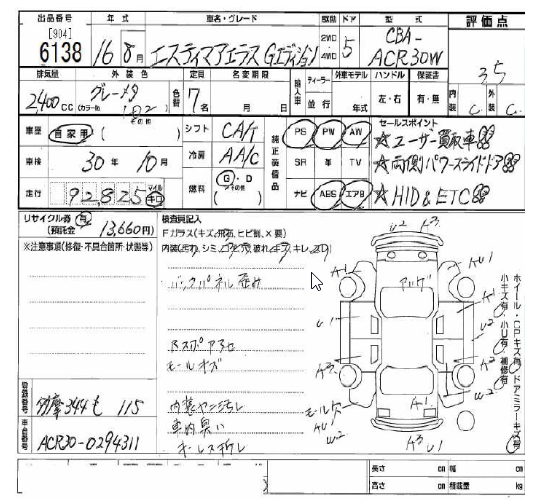 出品番号 年式 車名・グレード 駆動 ドア 型式 評価点
[904]
6138 16年8月 エスティマアエラスGエディション 2WD 4WD 5 CBA-ACR30W 3.5
排気量 外装色 定員 名変期限 輸入車 ディーラー 並行 外車モデル ハンドル 保証書 内装 外装
2,400cc グレーメタ (カラーNo. 1B2) 色替 7名 月 日 年式 左・右 有・無 C C
車歴 自家用 ( その他 ) シフト CA/T 純正装備品 PS PW AW セールスポイント
☆ユーザー買取車
車検 30年10月 冷房 AA/C SR 革 TV ☆両側パワースライドドア
走行 92,825 マイル キロ 燃料 G・D その他 ナビ ABS エアB ☆HID&ETC
リサイクル券 有
(預託金 13,660円)
※注意事項(修復・不具合箇所・状態等)
検査員記入
Fガラス(キズ、飛石、ヒビ割、X要)
バックパネル歪み
モールキズ
内装ヤニ汚レ
車内臭い
キーレス折レ
登録番号 多摩 344 も 115
車台番号 ACR30-0294311
U2 A3
A1 AU1
アルゲ
A1
U1 U2
A3 A2
モール欠
AU U2
A1 U2
A3 U1
ホイール・CPキズ有
小キズ有・小U有・補修有
ドアミラーキズ有
長さ cm 幅 cm
高さ cm 積載量 kg